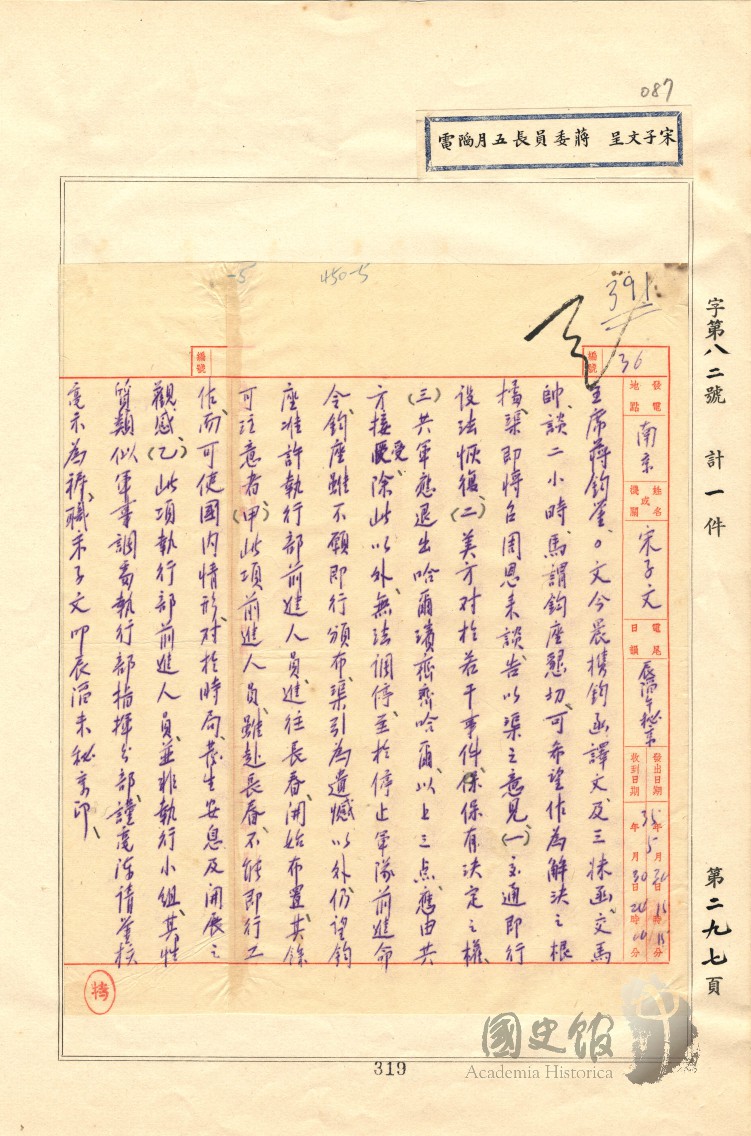 087
宋子文呈 蔣委員長五月陷電
字第八二號 計一件
第二九七頁
-5
450-5
391
編號
36
發電地點
南京
姓名或機關
宋子文
電尾日韻
發出日期
35年5月30日15時15分
收到日期
年 月30日20時00分
主席蔣鈞鑒。文今晨携鈞函譯文及三妹函交馬
帥、談二小時、馬謂鈞座懇切、可希望作為解決之根
據、渠即將召周恩來談、告以渠之意見、(一)交通即行
設法恢復(二)美方对於若干事件保有決定之權、
(三)共軍應退出哈爾濱齊齊哈爾、以上三点、應由共
方接受、除此以外、無法調停、至於停止軍隊前進命
令、鈞座雖不願即行頒布、渠引為遺憾、以外仍望鈞
座准許執行部前進人員、進往長春、開始布置、其餘
可注意者、(甲)此項前進人員、雖赴長春、不能即行工
作、而可使國內情形、对於時局、發生安息及開展之
觀感、(乙)此項執行部前進人員、並非執行小組、其性
質類似軍事調處執行部指揮分部、謹電陳請鑒核
電示為禱、職宋子文叩辰陷未秘京印、
編號
319
國史館
Academia Historica